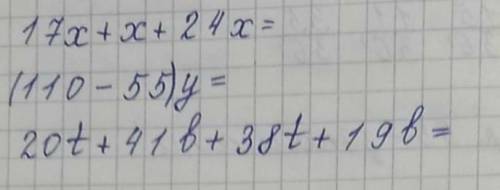 17x + x + 24x =
(110 - 55)y =
20t + 41b + 38t + 19b =